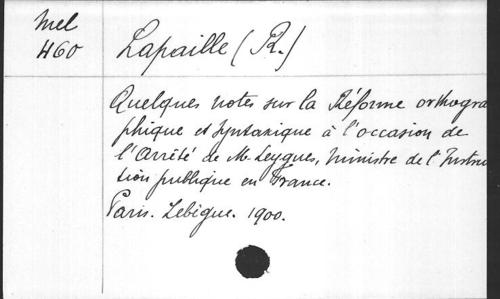 Mel
460
Lapaille (R.)
Quelques notes sur la Réforme orthogra
phique et syntaxique à l'occasion de
l'Arrêté de M. Leygues, Ministre de l'Instruc
tion publique en France.
Paris. Lebigue. 1900.